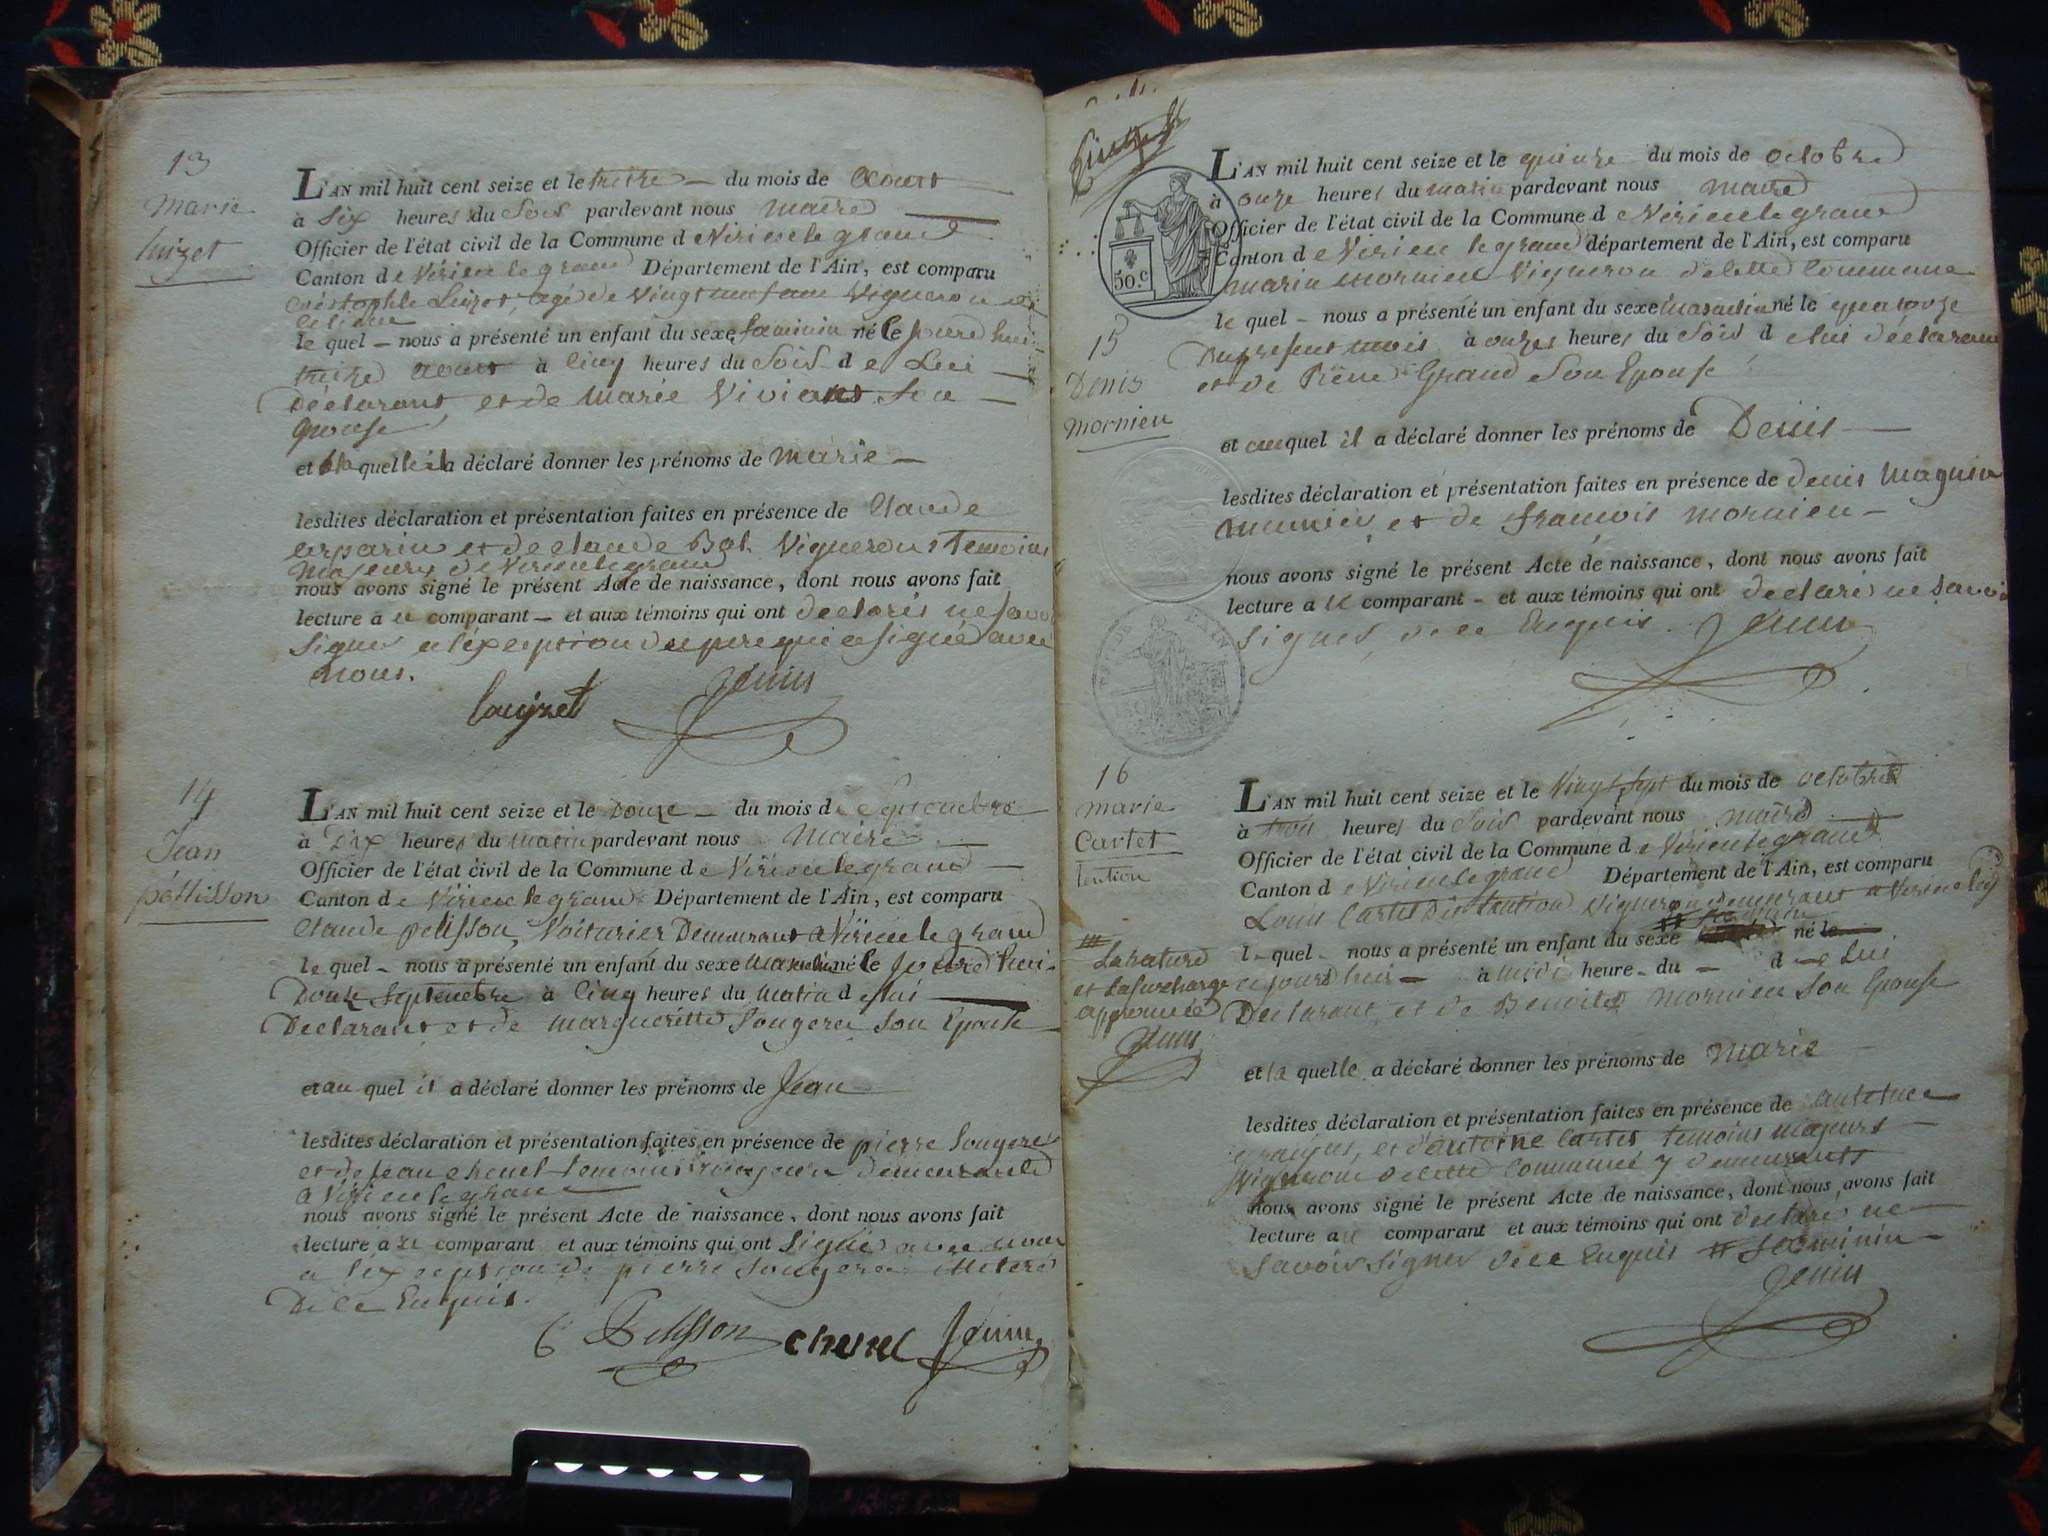 13
Marie
luizet
L'AN mil huit cent seize et le treize du mois de Aoust
à Six heures du Soir pardevant nous maire
Officier de l'état civil de la Commune de Virieu le grand
Canton de Virieu le grand Département de l'Ain, est comparu
Luizet, agé de Vingt Vigneron
le quel nous a présenté un enfant du sexe faminin né le jourd hui
treize Aoust à Cinq heures du Soir de Lui
Déclarant et de Marie Son
Epouse
et a la quelle il a déclaré donner les prénoms de marie
lesdites déclaration et présentation faites en présence de Claude
et de claude Vignerons temoins
Majeurs de Virieu le grand
nous avons signé le présent Acte de naissance, dont nous avons fait
lecture a ce comparant et aux témoins qui ont declarés ne savoir
Signer a l'éxception du pere qui a signé avec
nous.
Louizet Jenin
14
Jean
péllisson
L'AN mil huit cent seize et le Douze du mois de Septembre
à Dix heures du matin pardevant nous Maire
Officier de l'état civil de la Commune de Virieu le grand
Canton de Virieu le grand Département de l'Ain, est comparu
Claude pelisson, Voiturier Demeurant a Virieu le grand
le quel nous a présenté un enfant du sexe Masculin né le jourd hui
Douze Septembre à Cinq heures du Matin de lui
Declarant et de margueritte Sougere Son Epouse
et au quel il a déclaré donner les prénoms de Jean
lesdites déclaration et présentation faites en présence de pierre Sougere
et de Jean chenel temoins majeurs demeurants
a Virieu le grand
nous avons signé le présent Acte de naissance, dont nous avons fait
lecture a ce comparant et aux témoins qui ont Signés avec nous
a l'éxception de pierre Sougere illiteré
De ce Enquis.
C Pelisson chenel Jenin
50.c
15
Denis
mornieu
L'AN mil huit cent seize et le quinze du mois de octobre
à onze heures du matin pardevant nous maire
Officier de l'état civil de la Commune de Virieu le grand
Canton de Virieu le grand département de l'Ain, est comparu
marin mornieu Vigneron de cette Commune
le quel nous a présenté un enfant du sexe masculin né le quatorze
Du present mois à onzes heures du Soir de lui déclarant
et de Grand Son Epouse
et auquel il a déclaré donner les prénoms de Denis
lesdites déclaration et présentation faites en présence de denis Magnin
meunier, et de francois mornieu
nous avons signé le présent Acte de naissance, dont nous avons fait
lecture a ce comparant et aux témoins qui ont declaré ne savoir
Signer, de ce Enquis. Jenin
16
marie
Cartet
tention
L'AN mil huit cent seize et le Vingt Sept du mois de octobre
à trois heures du Soir pardevant nous maire
Officier de l'état civil de la Commune de Virieu le grand
Canton de Virieu le grand Département de l'Ain, est comparu
Louis Cartet Dit tantion Vigneron demeurant a Virieu le g
faminin
lequel nous a présenté un enfant du sexe né le
ce jourd huir à midi heure du de Lui
Declarant, et de Benoite mornieu Son Epouse
La rature
et la surcharge
approuvée
Jenin
et la quelle a déclaré donner les prénoms de marie
lesdites déclaration et présentation faites en présence de
et d'antoine Cartet temoins majeurs
Vignerons de cette Commune y demeurants
nous avons signé le présent Acte de naissance, dont nous avons fait
lecture a ce comparant et aux témoins qui ont declaré ne
Savoir Signer de ce Enquis # faminin
Jenin